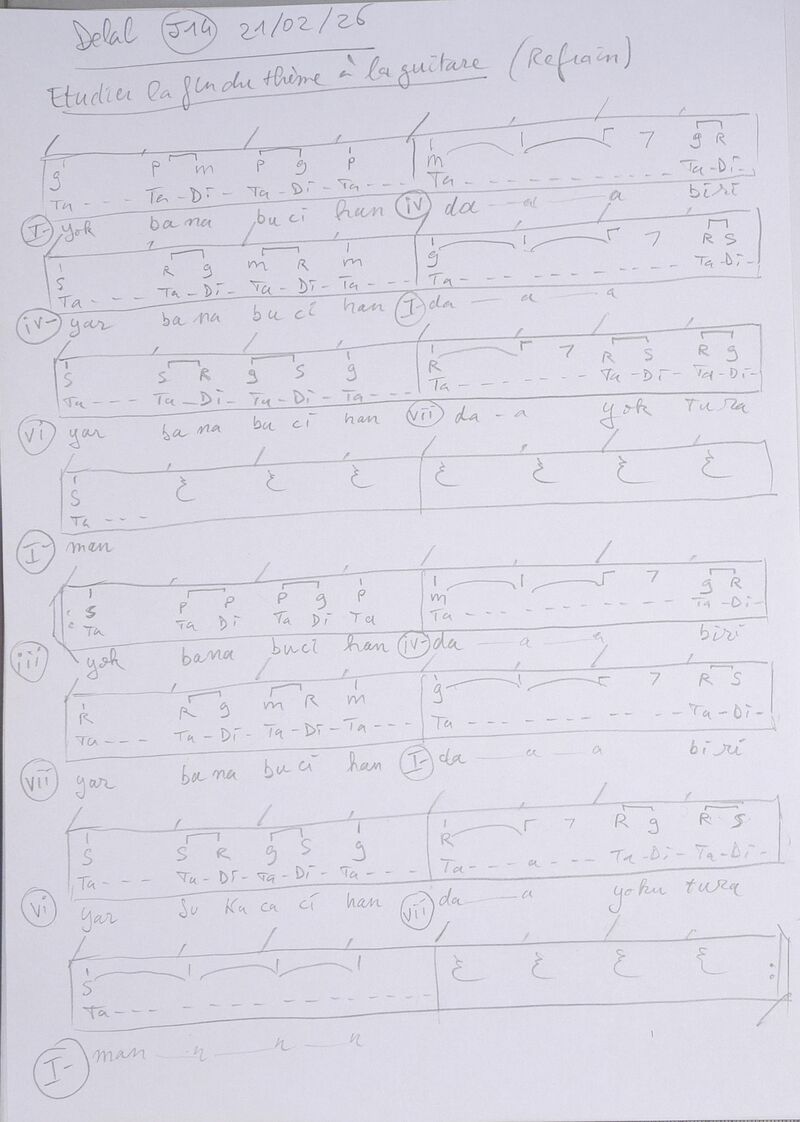 Delal J14 21/02/26
Etudier la fin du thème à la guitare (Refrain)
g P m P g P m g R
Ta - - - - Ta - Di - Ta - Di - Ta - - - - Ta - - - - - - - - - - - - Ta - Di -
I- yok ba na bu ci han iv da - a - a biri
S R g m R m g R S
Ta - - - Ta - Di - Ta - Di - Ta - - - Ta - - - - - - - - - - - - Ta - Di -
iv- yar ba na bu ci han I- da - a - a
S S R g S g R R S R g
Ta - - - Ta - Di - Ta - Di - Ta - - - Ta - - - - - - - Ta - Di - Ta - Di -
vi yar ba na bu ci han vii da - a yok tura
S
Ta - - -
I- man
S P P P g P m g R
Ta Ta Di Ta Di Ta Ta - - - - - - - - - - - - Ta - Di -
iii yok bana bu ci han iv- da - a - a biri
R R g m R m g R S
Ta - - - Ta - Di - Ta - Di - Ta - - - - Ta - - - - - - - - - - - - Ta - Di -
vii yar ba na bu ci han I- da - a - a biri
S S R g S g R R g R S
Ta - - - Ta - Di - Ta - Di - Ta - - - - Ta - - - a - - - Ta - Di - Ta - Di -
vi yar Su Ka ca ci han vii da - a yoku tura
S
Ta - - - - - - - - - - - - - - -
I- man - n - n - n